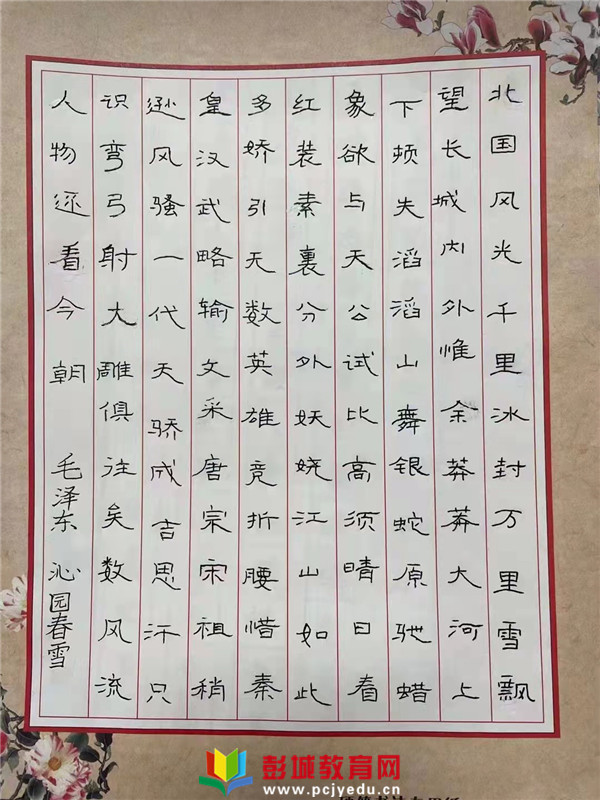 北国风光千里冰封万里雪飘
望长城内外惟余莽莽大河上
下顿失滔滔山舞银蛇原驰蜡
象欲与天公试比高须晴日看
红装素裹分外妖娆江山如此
多娇引无数英雄竞折腰惜秦
皇汉武略输文采唐宗宋祖稍
逊风骚一代天骄成吉思汗只
识弯弓射大雕俱往矣数风流
人物还看今朝 毛泽东 沁园春雪
彭城教育网
www.pcjyedu.cn